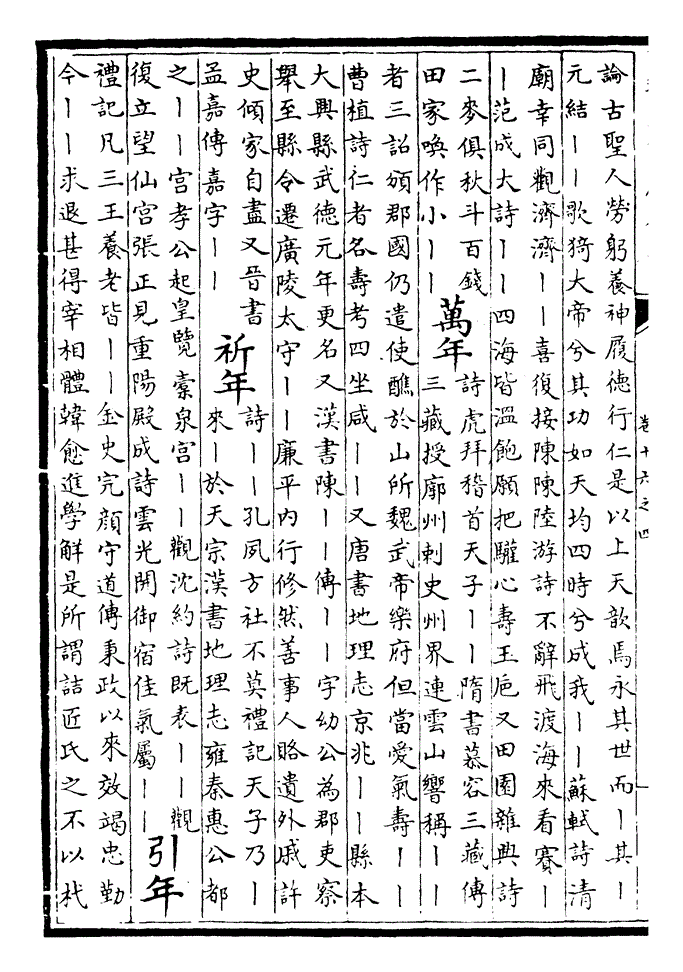 卷十六之四
論古聖人勞躬養神履德行仁是以上天歆焉永其世而丨其丨
元結丨丨歌猗大帝兮其功如天均四時兮成我丨丨蘇軾詩清
廟幸同觀濟濟丨丨喜復接陳陳陸游詩不辭飛渡海來看賽丨
丨范成大詩丨丨四海皆溫飽願把驩心壽王巵又田園雜興詩
二麥俱秋斗百錢
田家喚作小丨丨
萬年
詩虎拜稽首天子丨丨隋書慕容三藏傳
三藏授廓州刺史州界連雲山響稱丨丨
者三詔頒郡國仍遣使醮於山所魏武帝樂府但當愛氣壽丨丨
曹植詩仁者各壽考四坐咸丨丨又唐書地理志京兆丨丨縣本
大興縣武德元年更名又漢書陳丨丨傳丨丨字幼公為郡吏察
舉至縣令遷廣陵太守丨丨廉平內行修然善事人賂遺外戚許
史傾家自盡又晉書
孟嘉傳嘉字丨丨
祈年
詩丨丨孔夙方社不莫禮記天子乃丨
來丨於天宗漢書地理志雍秦惠公都
之丨丨宮孝公起皇覽槖泉宮丨丨觀沈約詩既表丨丨觀
復立望仙宮張正見重陽殿成詩雲光開御宿佳氣屬丨丨
引年
禮記凡三王養老皆丨丨金史完顏守道傳秉政以來效竭忠勤
今丨丨求退甚得宰相體韓愈進學解是所謂詰匠氏之不以杙